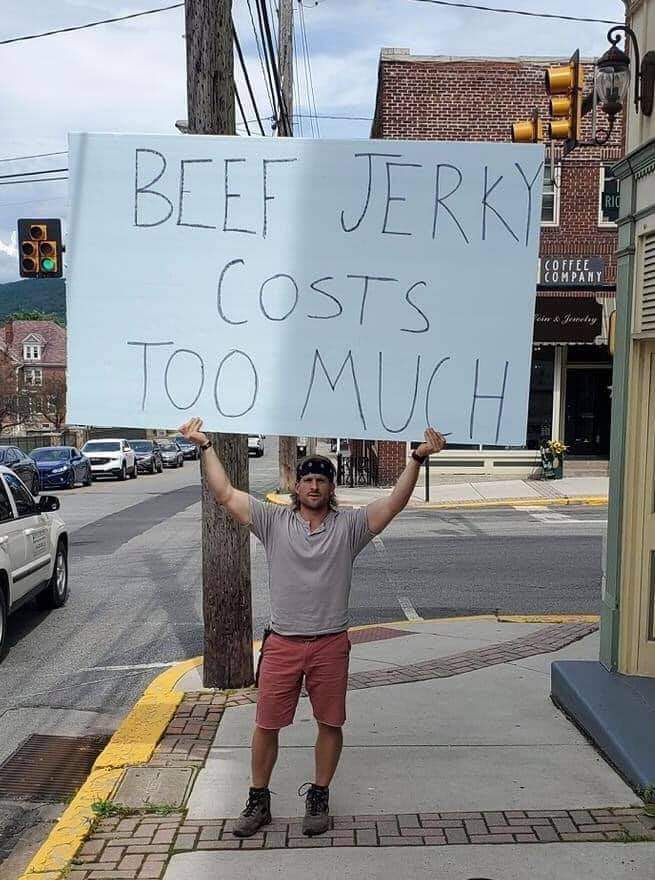 BEEF JERKY
COSTS
TOO MUCH
RIC
COFFEE
COMPANY
& Jewelry